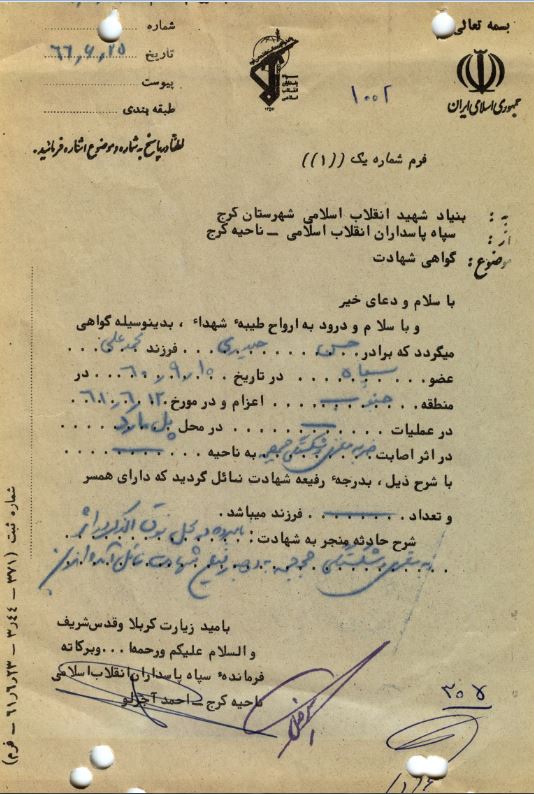 بسمه تعالی
جمهوری اسلامی ایران
۱۰۰۲
شماره
تاریخ ۶۶٫۶٫۲۵
پیوست
طبقه بندی
لطفاً در پاسخ به شماره و موضوع اشاره فرمائید.
فرم شماره یک ((۱))
به : بنیاد شهید انقلاب اسلامی شهرستان کرج
از : سپاه پاسداران انقلاب اسلامی ــ ناحیه کرج
موضوع : گواهی شهادت
با سلام و دعای خیر
و با سلام و درود به ارواح طیبهٔ شهداء ، بدینوسیله گواهی
میگردد که برادر حسن حیدری فرزند محمدعلی
عضو سپاه در تاریخ ۶۰٫۹٫۱۰ در
منطقه جنوب اعزام و در مورخ
در عملیات ــ در محل پل مارد
در اثر اصابت ضربه مغزی و شکستگی جمجمه به ناحیه ــ
با شرح ذیل ، بدرجهٔ رفیعه شهادت نائل گردید که دارای همسر
و تعداد ــ فرزند میباشد.
شرح حادثه منجر به شهادت : نامبرده در محل فوق الذکر در اثر
ضربه مغزی و شکستگی جمجمه به درجه رفیع شهادت نائل آمده
بامید زیارت کربلا وقدس شریف
و السلام علیکم ورحمها...وبرکاته
فرماندهٔ سپاه پاسداران انقلاب اسلامی
ناحیه کرج ــ احمد آجرلو
شماره ثبت (۳۷۱ ــ ۳٫۴۴ ــ ۶۱٫۶٫۲۳ ــ فرم)